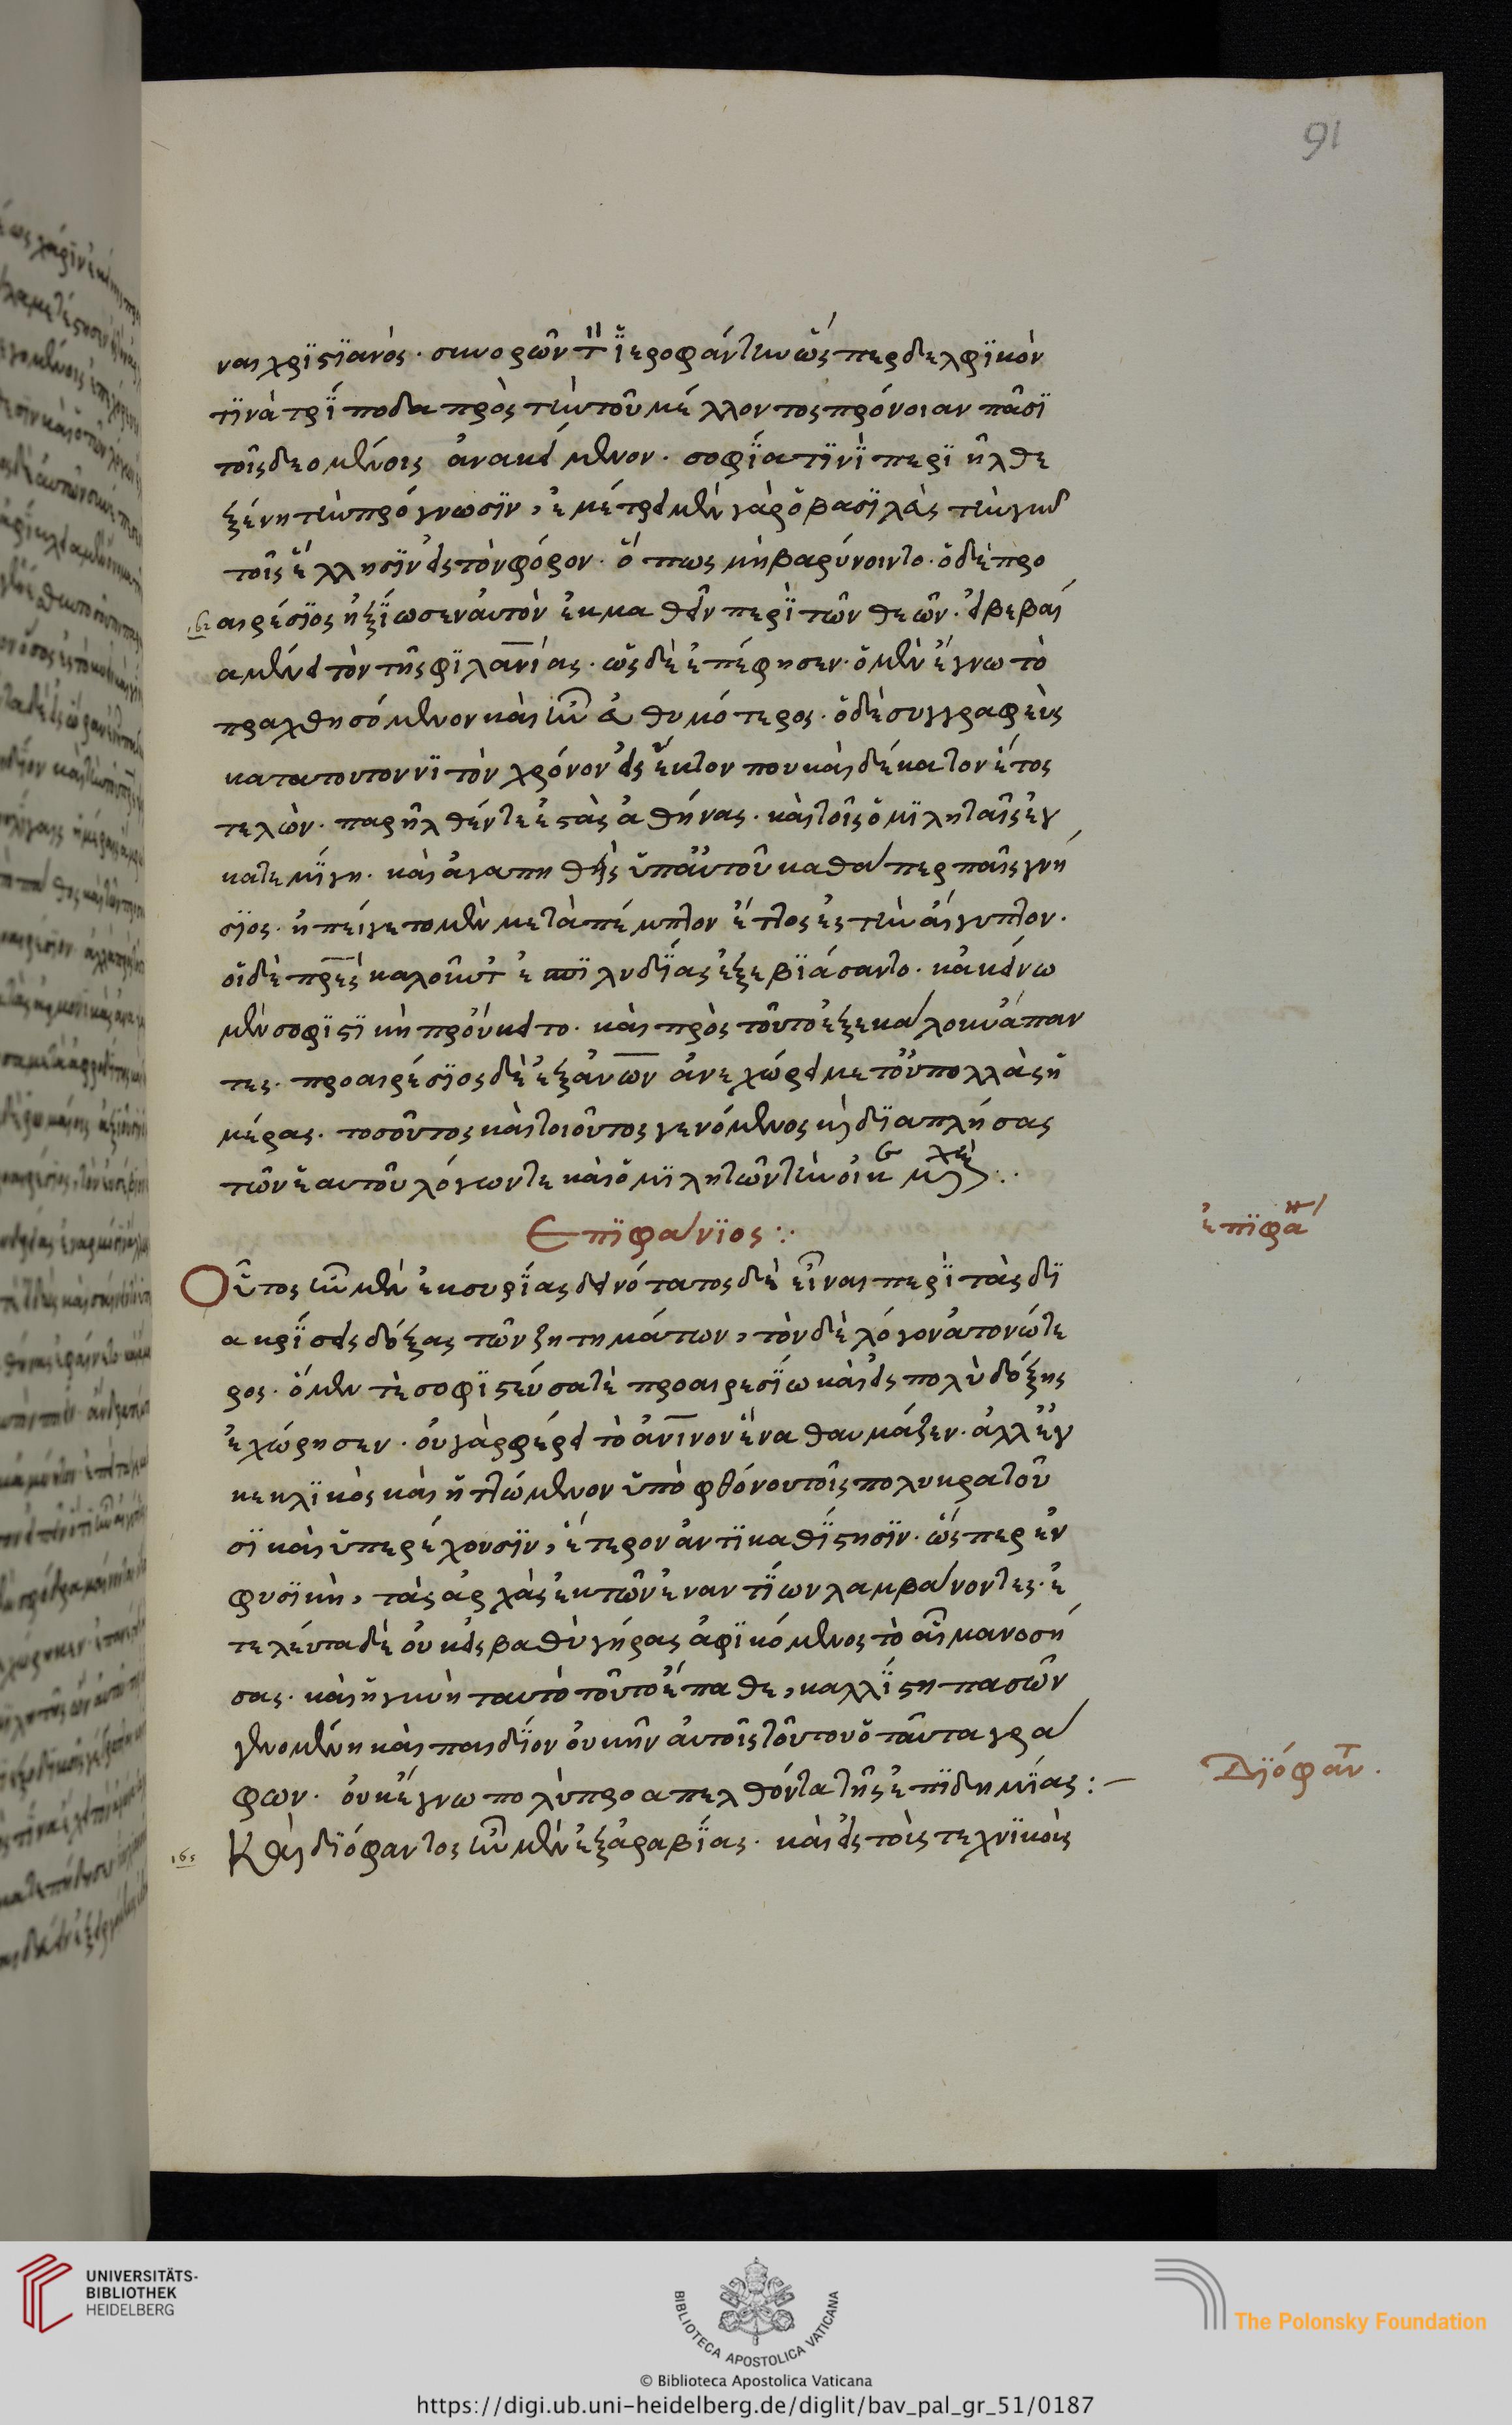 91
ναι χρϊστϊανός. συνορῶν τ ϊεροφάντην ὥσπερ δελφϊκὸν
τϊνὰ τρΐποδα πρὸς τὴν τοῦ μέλλοντος πρόνοιαν πᾶσϊ
τοῖς δεομένοις ἀνακείμενον. σοφΐα τϊνϊ περϊῆλθε
ξένη τὴν πρόγνωσϊν, ἐμέτρει μὲν γὰρ ὁ βασϊλεὺς τὴν γῆν
τοῖς ἕλλησϊν εἰς τὸν φόρον. ὅπως μὴ βαρύνοιντο. ὁ δὲ προ
αιρέσϊος ἠξΐωσεν αὐτὸν ἐκμαθεῖν περϊ τῶν θεῶν. εἰ βεβαί
α μένει τὸν τῆς φϊλανίας. ὡς δὲ ἐπέφησεν. ὁ μὲν ἔγνω τὸ
πραχθησόμενον καὶ ἦν εὐθυμότερος. ὁ δὲ συγγραφεὺς
κατα τουτοννϊ τὸν χρόνον εἰς ἕκτον που καὶ δέκατον ἔτος
τελῶν. παρῆλθέν τε ἐς τὰς ἀθήνας. καὶ τοῖς ὁμϊληταῖς ἐγ
κατεμΐγη. καὶ ἀγαπηθεὶς ὑπ αὐτοῦ καθάπερ παῖς γνή
σϊος. ἠπείγετο μὲν μετὰ πέμπτον ἔτος ἐς τὴν αἴγυπτον.
οἱ δὲ πρες καλοῦντ ἐπϊ λυδΐας ἐξεβϊάσαντο. κἀκείνω
μὲν σοφϊστϊκὴ προὔκειτο. καὶ πρὸς τοῦτο ἐξεκάλουν ἅπαν
τες. προαιρέσϊος δὲ ἐξ ἀνων ἀνεχώρει μετ οὐ πολλὰς ἡ
μέρας. τοσοῦτος καὶ τοιοῦτος γενόμενος κ δϊαπλήσας
τῶν ἑαυτοῦ λόγων τε καὶ ὁμϊλητῶν τὴν οἰκ
Επϊφάνϊος:
ἐπϊφα
Οὗτος ἦν μὲν ἐκ συρΐας δεινότατος δὲ εἶναι περϊ τὰς δϊ
ακρΐσεις δόξας τῶν ζητημάτων, τὸν δὲ λόγον ἀτονώτε
ρος. ὅμων τε σοφϊστεύσατε προαιρεσΐω καὶ εἰς πολὺ δόξης
ἐχώρησεν. οὐ γὰρ φέρει τὸ ἀνινον ἕνα θαυμάζειν. ἀλλ ἐγ
κεκλϊκὸς καὶ ἡττώμενον ὑπὸ φθόνου τοῖς πολυκρατοῦ
σϊ καὶ ὑπερέχουσϊν, ἕτερον ἀντϊκαθΐστησϊν. ὥσπερ ἐν
φυσϊκὴ, τὰς ἀρχὰς ἐκ τῶν ἐναντΐων λαμβάνοντες. ἐ
τελεύτα δὲ οὐκ εἰς βαθὺ γήρας ἀφϊκόμενος τὸ αἷμα νοσή
σας. καὶ ἡ γυνὴ ταυτὸ τοῦτο ἔπαθε, καλλΐστη πασῶν
γενομένη καὶ παιδΐον οὐκ ἦν αὐτοῖς τοῦτον ὁ ταῦτα γρά
φων. οὐκ ἔγνω πολὺ προαπελθόντα τῆς ἐπϊδημΐας:—
Δϊόφαν.
Καὶ δϊόφαντος ἦν μὲν ἐξ ἀραβΐας. καὶ εἰς τοὺς τεχνϊκοὺς
165
UNIVERSITÄTS-
BIBLIOTHEK
HEIDELBERG
BIBLIOTECA APOSTOLICA VATICANA
The Polonsky Foundation
© Biblioteca Apostolica Vaticana
https://digi.ub.uni-heidelberg.de/diglit/bav_pal_gr_51/0187